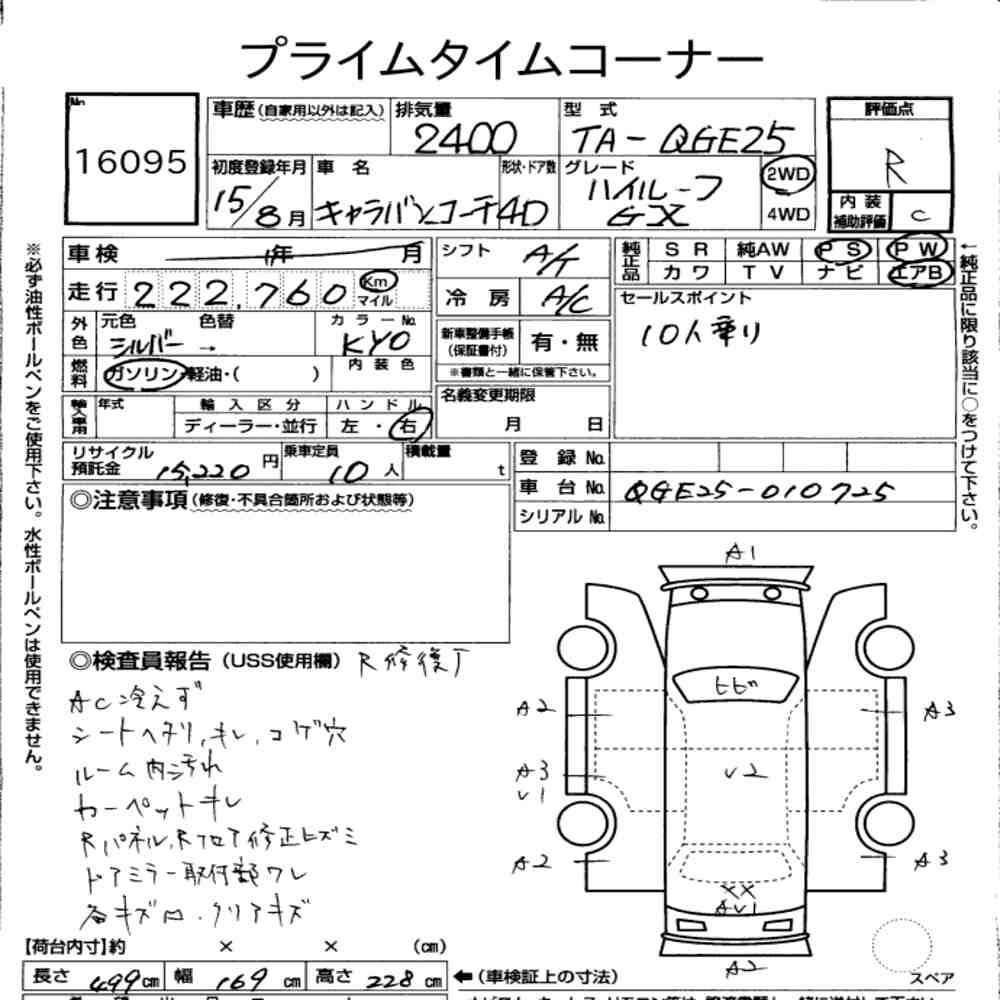 プライムタイムコーナー
No. 16095
車歴(自家用以外は記入) 排気量 2400 型式 TA-QGE25 評価点 R
初度登録年月 15/8月 車名 キャラバンコーチ 形状・ドア数 4D グレード ハイルーフ GX 2WD 4WD
内装補助評価 C
車検 年 月 シフト A/T 純正品 SR 純AW PS PW
カワ TV ナビ エアB
走行 222,760 Km マイル 冷房 A/C セールスポイント
10人乗り
外色 元色 シルバー 色替 → カラーNo. KY0 新車整備手帳(保証書付) 有・無
※書類と一緒に保管下さい。
燃料 ガソリン・軽油・( ) 内装色
名義変更期限 月 日
輸入車用 年式 輸入区分 ディーラー・並行 ハンドル 左・右
リサイクル預託金 15,220円 乗車定員 10人 積載量 t 登録No.
車台No. QGE25-010725
シリアルNo.
◎注意事項(修復・不具合箇所および状態等)
※必ず油性ボールペンをご使用下さい。水性ボールペンは使用できません。
←純正品に限り該当に○をつけて下さい。
◎検査員報告(USS使用欄) R修復歴
AC冷えず
シートヘタリ,キレ,コゲ穴
ルーム内汚れ
カーペットキレ
Rパネル,Rフロア修正ヒズミ
ドアミラー取付部ワレ
各キズ凹.クリアキズ
A1
ヒビ
A2
A3
A3
V1
V2
A2
A3
XX
AV1
A2
スペア
【荷台内寸】約 × × (cm)
長さ 499cm 幅 169cm 高さ 228cm ←(車検証上の寸法)